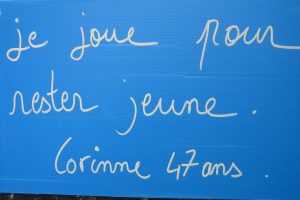 je joue pour
rester jeune.
Corinne 47 ans.